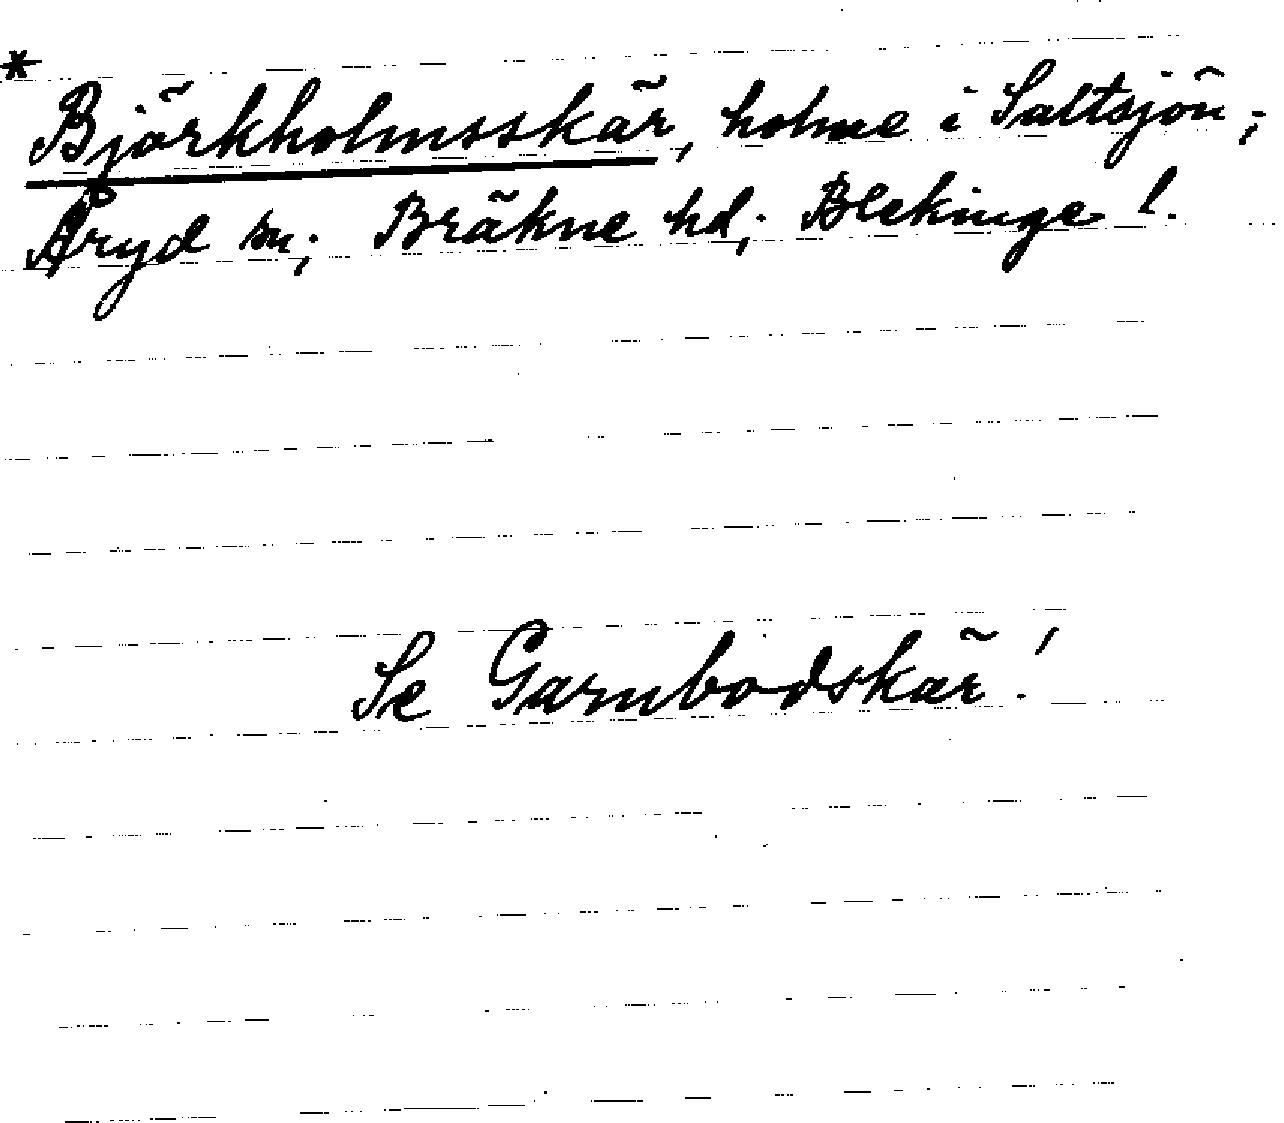 *
Björkholmsskär, holme i Saltsjön;
Åryd sn; Bräkne hd; Blekinge l.
Se Garnbodskär!